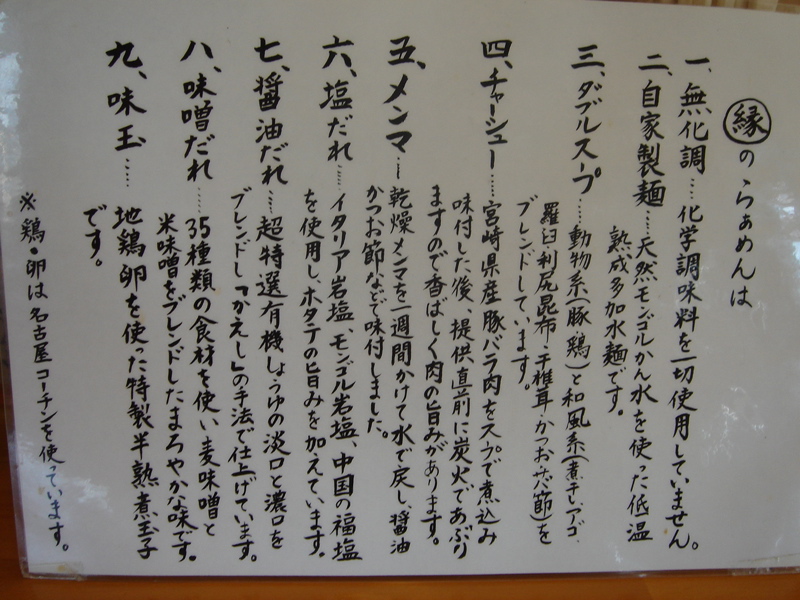 縁のらぁめんは
一、無化調……化学調味料を一切使用していません。
二、自家製麺……天然モンゴルかん水を使った低温
熟成多加水麺です。
三、ダブルスープ……動物系(豚・鶏)と和風系(煮干・アゴ・
羅臼・利尻昆布・干椎茸・かつお・サバ節)を
ブレンドしています。
四、チャーシュー……宮崎県産豚バラ肉をスープで煮込み
味付した後、提供直前に炭火であぶり
ますので香ばしく肉の旨みがあります。
五、メンマ……乾燥メンマを一週間かけて水で戻し、醤油
かつお節などで味付しました。
六、塩だれ……イタリア岩塩、モンゴル岩塩、中国の福塩
を使用し、ホタテの旨みを加えています。
七、醤油だれ……超特選有機しょうゆの淡口と濃口を
ブレンドし「かえし」の手法で仕上げています。
八、味噌だれ……35種類の食材を使い麦味噌と
米味噌をブレンドしたまろやかな味です。
九、味玉……地鶏卵を使った特製半熟煮玉子
です。
※鶏・卵は名古屋コーチンを使っています。